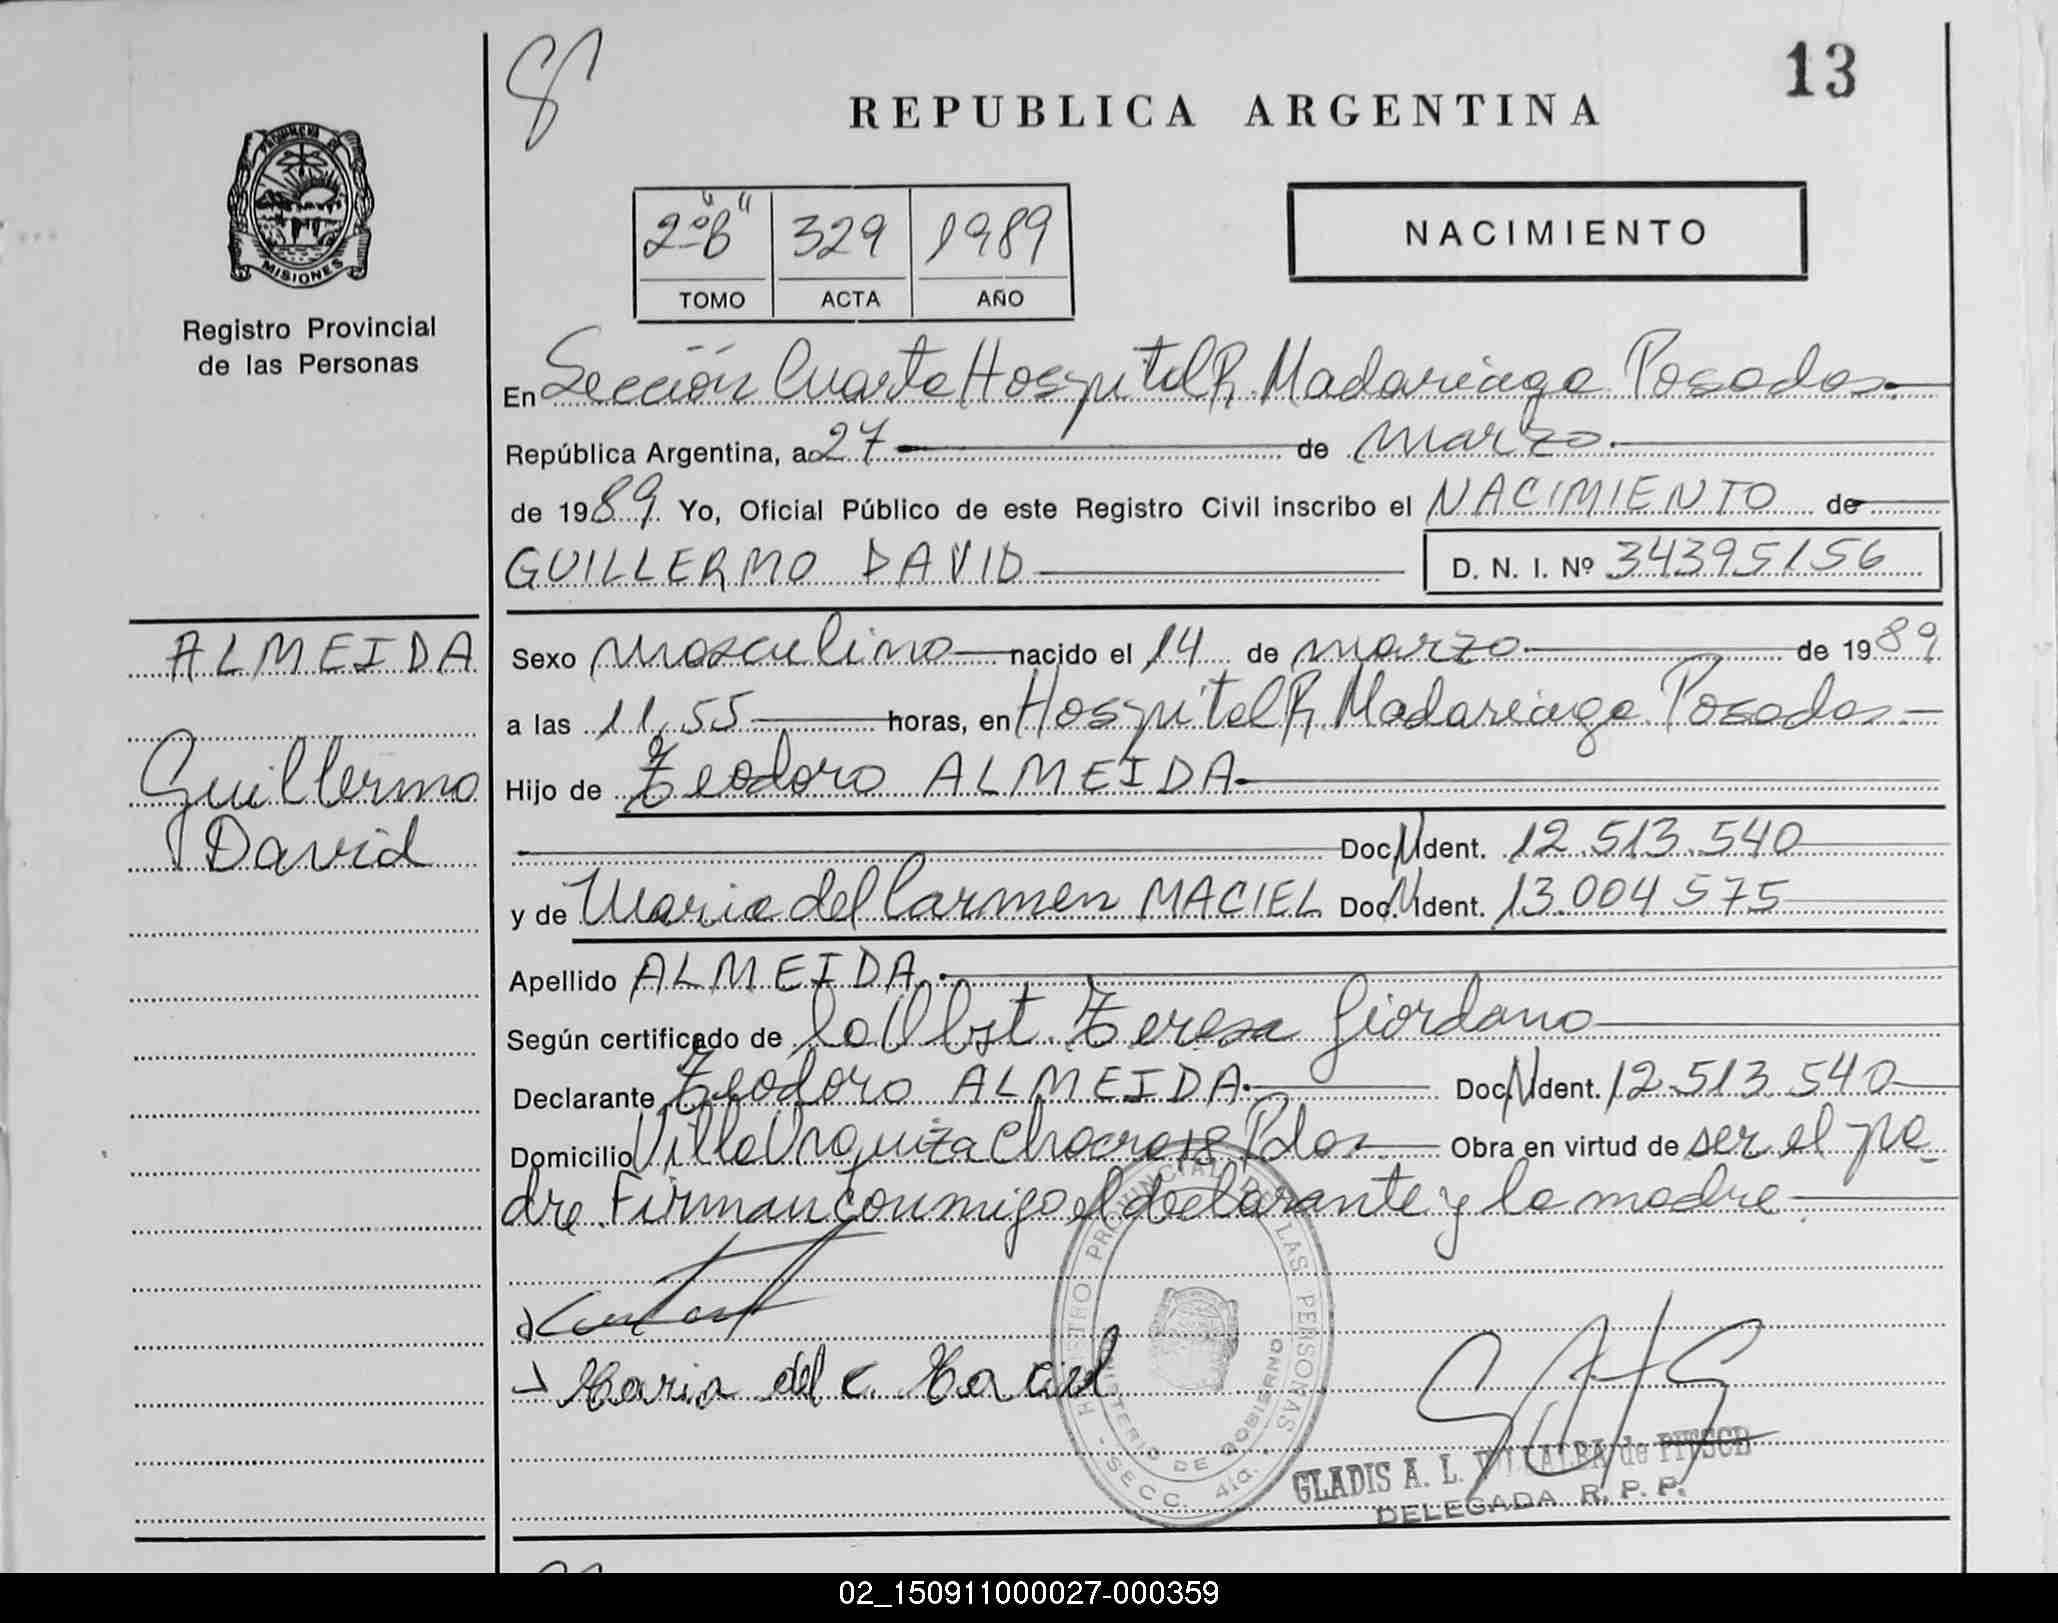 13
REPUBLICA ARGENTINA
PROVINCIA DE
MISIONES
Registro Provincial
de las Personas
2º "B" 329 1989
TOMO ACTA AÑO
NACIMIENTO
En Sección Cuarta Hospital R. Madariaga Posadas.
República Argentina, a 27 de marzo.
de 1989 Yo, Oficial Público de este Registro Civil inscribo el NACIMIENTO de
GUILLERMO DAVID D. N. I. Nº 34395156
ALMEIDA
Guillermo
David
Sexo masculino nacido el 14 de marzo de 1989
a las 11,55 horas, en Hospital R. Madariaga Posadas.
Hijo de Teodoro ALMEIDA
Doc. N Ident. 12.513.540
y de Maria del Carmen MACIEL Doc. N Ident. 13.004 575
Apellido ALMEIDA.
Según certificado de la Obst. Teresa Giordano
Declarante Teodoro ALMEIDA. Doc. N Ident. 12.513.540
Domicilio Villa Urquiza Chacra 18 Pdas. Obra en virtud de ser el pa-
dre. Firman conmigo el declarante y la madre
Maria del C. Maciel
REGISTRO PROVINCIAL DE LAS PERSONAS
MINISTERIO DE GOBIERNO
- SECC. 4ta. -
GLADIS A. L. VILLALBA de
DELEGADA R. P. P.
02_150911000027-000359